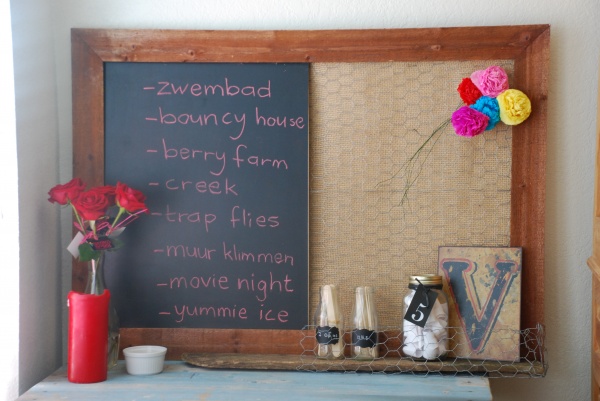 -zwembad
-bouncy house
-berry farm
-creek
-trap flies
-muur klimmen
-movie night
-yummie ice
5
V